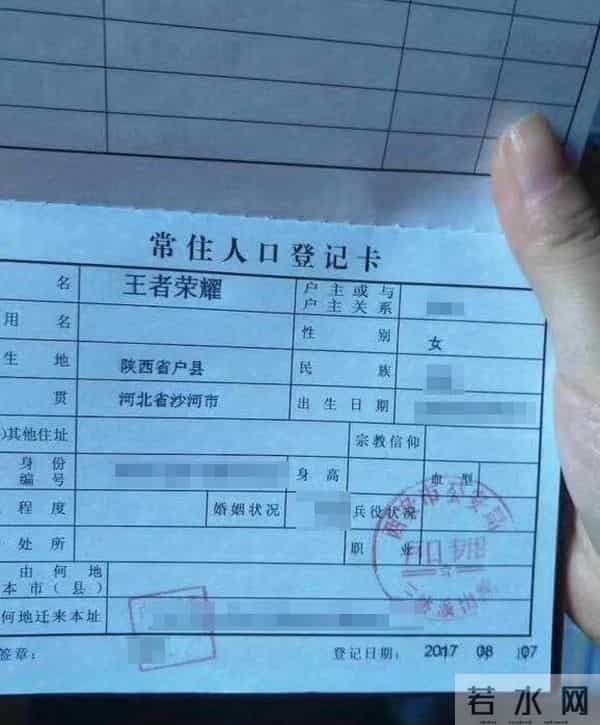 常住人口登记卡
名 王者荣耀 户主或与户主关系
用名 性别 女
生地 陕西省户县 民族
贯 河北省沙河市 出生日期
)其他住址 宗教信仰
身份编号 身高 血型
程度 婚姻状况 兵役状况
处所 职业
由何地
本市(县)
何地迁来本址
签章: 登记日期: 2017 08 07
西安市公安局
户口专用
若水网